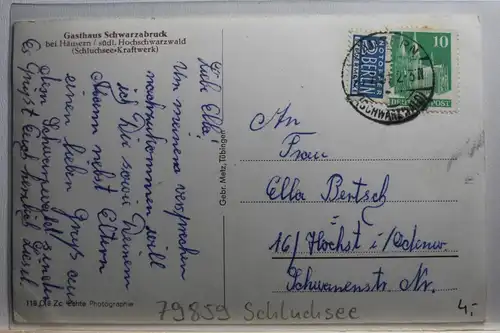 Gasthaus Schwarzabruck
bei Häusern / südl. Hochschwarzwald
(Schluchsee-Kraftwerk)
Liebe Ella,
Um meinem versprechen
nachzukommen will
ich Dir sowie Deinem
Mann nebst Eltern
einen lieben Gruß aus
dem Schwarzwald senden
Es Grüsst Euch herzlich
Gebr. Metz, Tübingen
NOTOPFER
2 BERLIN
STEUERMARKE
10
DEUTSCHE POST
(SCHWARZWALD)
An
Frau
Ella Bertsch
16/ Höchst i/Odenw.
Schwanenstr. Nr.
Echte Photographie
79859 Schluchsee
4,-